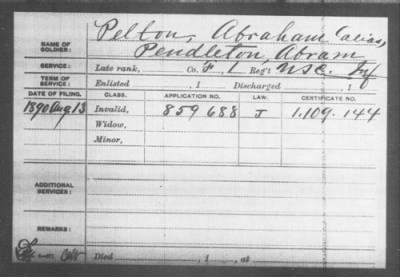 Pelton, Abraham (alias,
NAME OF SOLDIER: Pendleton, Abram
SERVICE: Late rank, Co. F, 1 Reg't U.S.C. Inf
TERM OF SERVICE: Enlisted , 1 Discharged , 1
DATE OF FILING. CLASS. APPLICATION NO. LAW. CERTIFICATE NO.
1890 Aug 13 Invalid, 859 688 J 1.109.144
Widow,
Minor,
ADDITIONAL SERVICES:
REMARKS:
Died , 1 , at